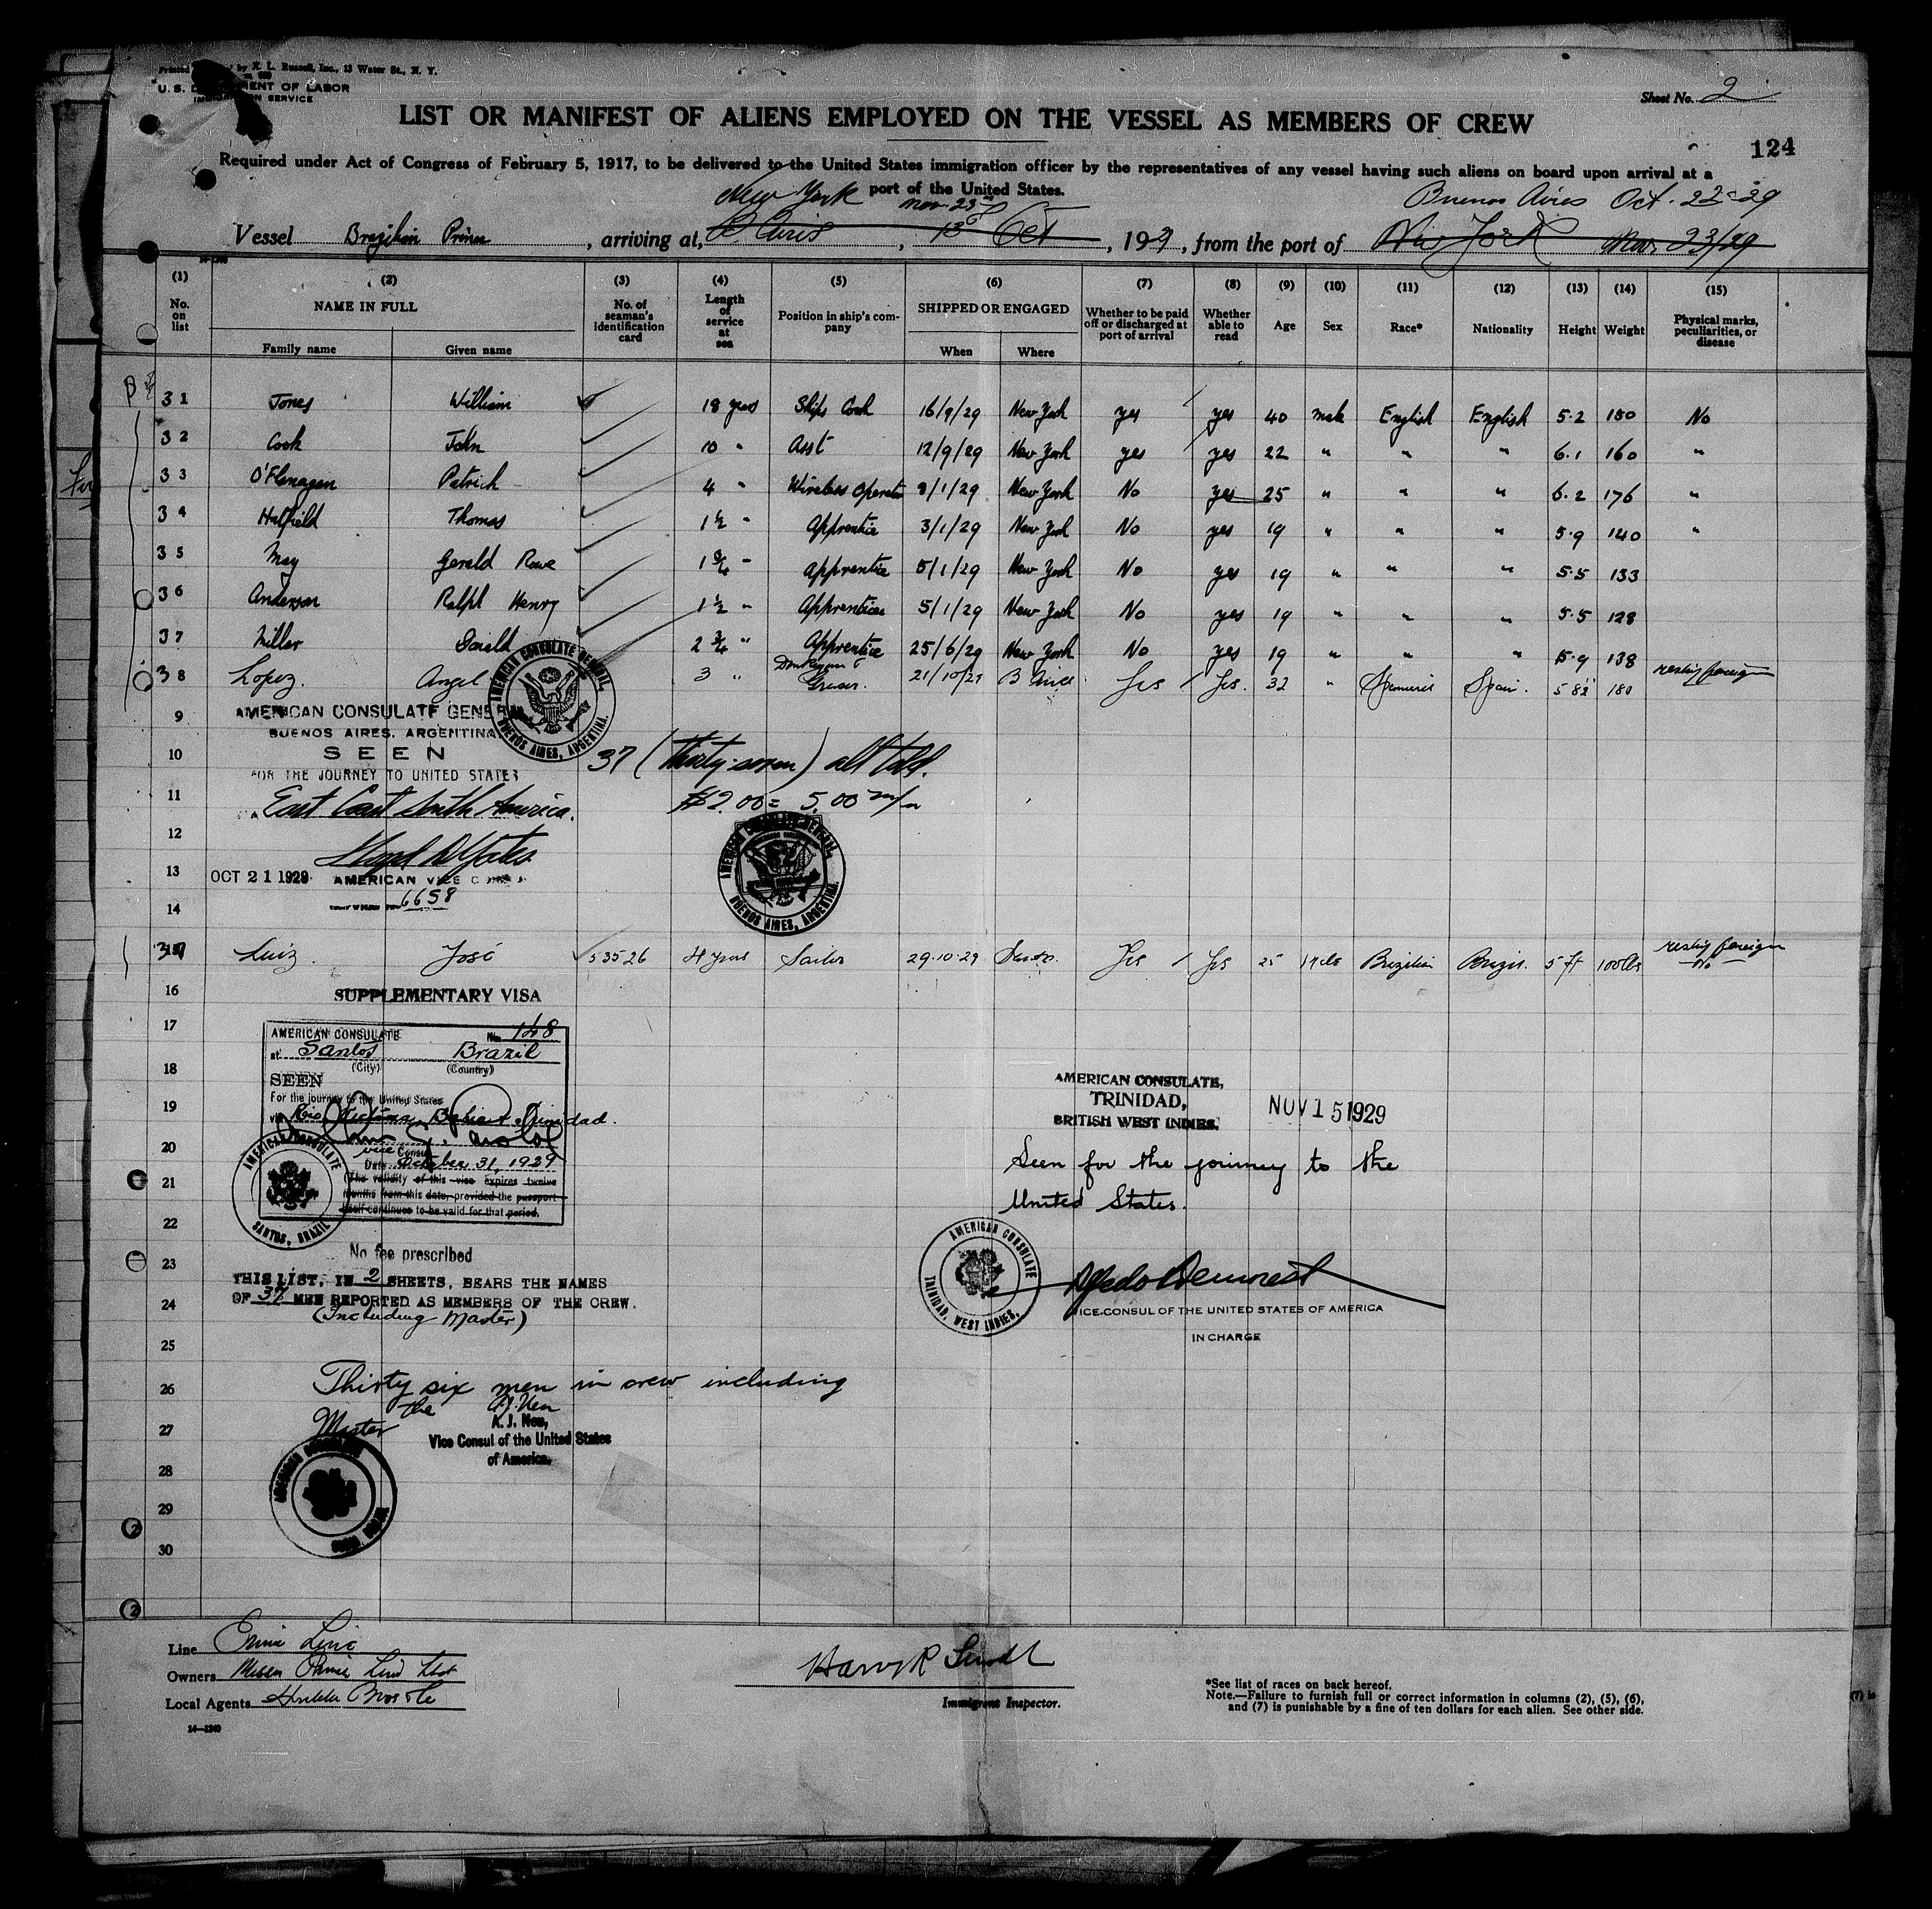 by X. L. Russell, Inc., 13 Water St., N. Y.
U. S. DEPARTMENT OF LABOR
IMMIGRATION SERVICE
Sheet No. 2
LIST OR MANIFEST OF ALIENS EMPLOYED ON THE VESSEL AS MEMBERS OF CREW
124
Required under Act of Congress of February 5, 1917, to be delivered to the United States immigration officer by the representatives of any vessel having such aliens on board upon arrival at a
port of the United States.
New York Nov 23 Buenos Aires Oct. 22-29
Vessel Brazilian Prince, arriving at, B Aires, 13 Oct, 1929, from the port of New York Nov. 23/29
(1) (2) (3) (4) (5) (6) (7) (8) (9) (10) (11) (12) (13) (14) (15)
No. on list NAME IN FULL Family name Given name No. of seaman's identification card Length of service at sea Position in ship's company SHIPPED OR ENGAGED When Where Whether to be paid off or discharged at port of arrival Whether able to read Age Sex Race* Nationality Height Weight Physical marks, peculiarities, or disease
31 Jones William 18 years Ships Cook 16/9/29 New York yes yes 40 male English English 5.2 150 No
32 Cook John 10 " Asst 12/9/29 New York yes yes 22 " " " 6.1 160 "
33 O'Flanagan Patrick 4 " Wireless Operator 8/1/29 New York No yes 25 " " " 6.2 176 "
34 Hatfield Thomas 1½ " Apprentice 3/1/29 New York No yes 19 " " " 5.9 140 "
35 May Gerald Rowe 1¾ " Apprentice 5/1/29 New York No yes 19 " " " 5.5 133
36 Anderson Ralph Henry 1½ " Apprentice 5/1/29 New York No yes 19 " " " 5.5 128
37 Miller Donald 2¾ " Apprentice 25/6/29 New York No yes 19 " " " 5.9 138
38 Lopez. Angel 3 " Donkeyman & Greaser. 21/10/29 B Aires Yes Yes. 32 " Spain. 180 reship foreign
9
AMERICAN CONSULATE GENERAL
BUENOS AIRES, ARGENTINA
10
SEEN
37 (Thirty-seven) all told.
FOR THE JOURNEY TO UNITED STATES
11
East Coast South America.
$2.00 = 5.00 m/n
AMERICAN CONSULATE GENERAL, BUENOS AIRES, ARGENTINA.
AMERICAN CONSULATE GENERAL, BUENOS AIRES, ARGENTINA.
12
Lloyd D Yates
13
OCT 21 1929 AMERICAN VICE CONSUL
6658
14
39 Luiz. José 53526 4 years Sailor 29.10.29 Santos. Yes Yes 25 Male Brazilian Brazil. 5 ft 100lbs reship foreign No
16
SUPPLEMENTARY VISA
17
AMERICAN CONSULATE No. 148
at Santos Brazil
(City) (Country)
18
SEEN
For the journey to the United States
19
via Rio, Victoria, Bahia & Trinidad.
20
vice Consul
Date October 31, 1929
21
(The validity of this visa expires twelve
months from this date, provided the passport
itself continues to be valid for that period.
AMERICAN CONSULATE SANTOS, BRAZIL
22
AMERICAN CONSULATE,
TRINIDAD,
BRITISH WEST INDIES.
NOV 15 1929
Seen for the journey to the
United States.
AMERICAN CONSULATE TRINIDAD, WEST INDIES.
VICE CONSUL OF THE UNITED STATES OF AMERICA
IN CHARGE
No fee prescribed
23
THIS LIST, IN 2 SHEETS, BEARS THE NAMES
24
OF 37 MEN REPORTED AS MEMBERS OF THE CREW.
(Including Master)
25
26
Thirty six men in crew including
the
27
Master
A. J. Neu,
Vice Consul of the United States
of America.
28
29
30
Line Prince Line
Owners Prince Line Ltd
Local Agents
14—1240
Immigrant Inspector.
*See list of races on back hereof.
Note.—Failure to furnish full or correct information in columns (2), (5), (6),
and (7) is punishable by a fine of ten dollars for each alien. See other side.